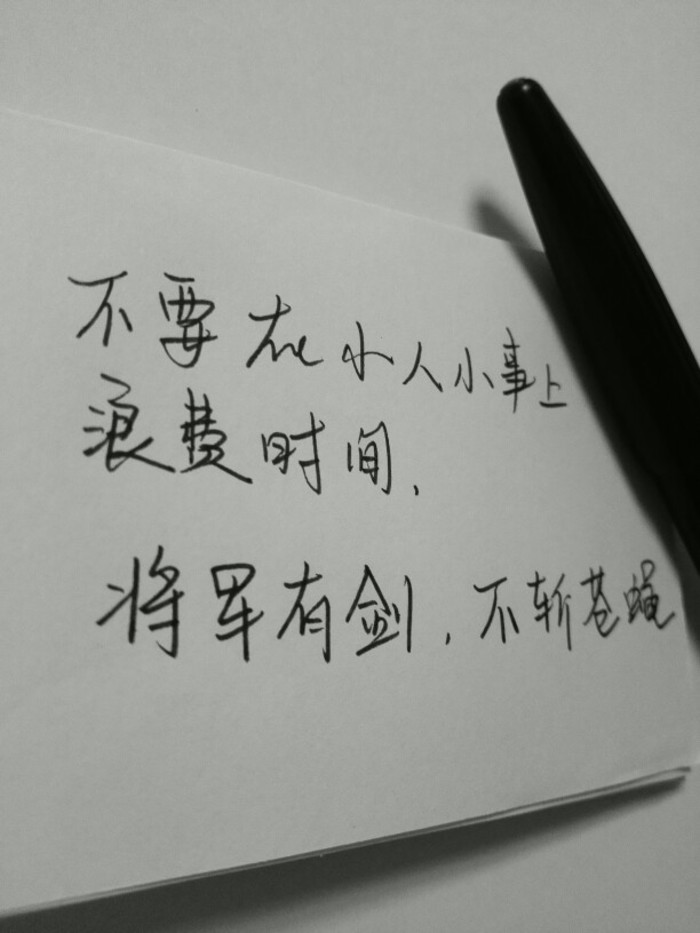 不要在小人小事上
浪费时间,
将军有剑,不斩苍蝇